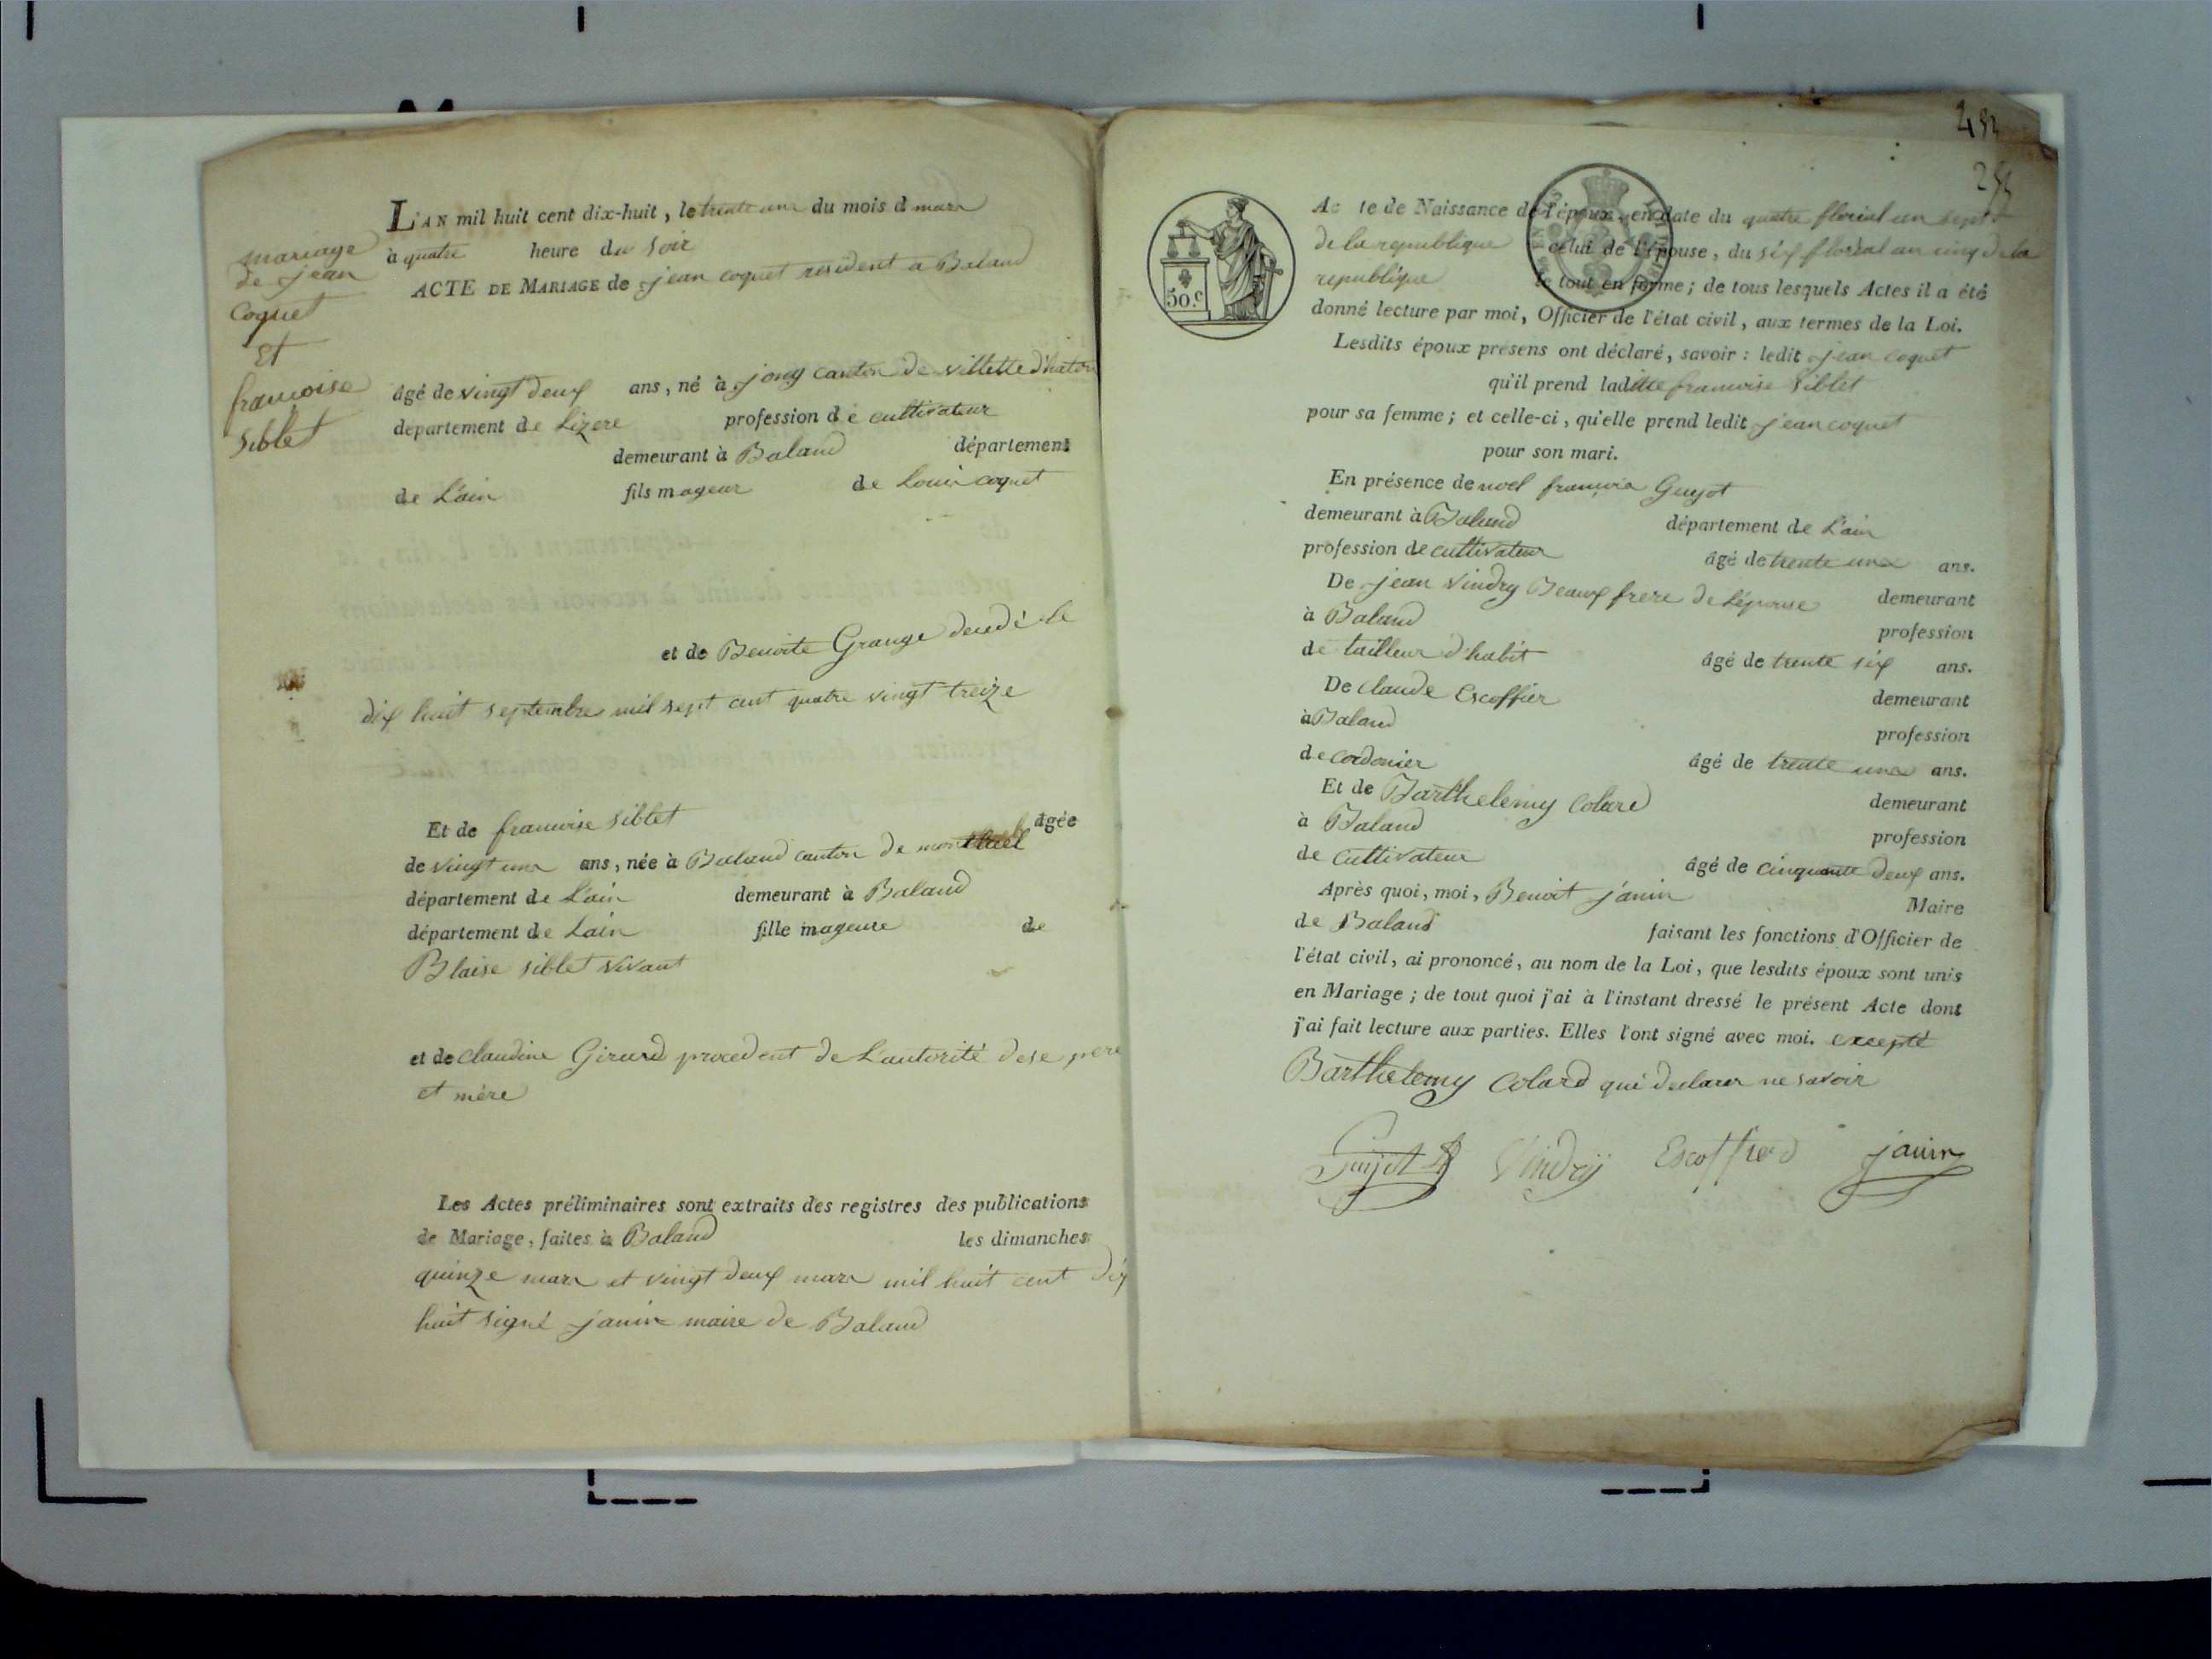 mariage
de jean
Coquet
Et
francoise
siblet
L'AN mil huit cent dix-huit, le trente un du mois d mars
à quatre heure du soir
ACTE DE MARIAGE de jean coquet résident a Baland
âgé de vingt deux ans, né à jony canton de villette d'haton
département de Lizere profession d e cultivateur
demeurant à Baland département
de L'ain fils mageur de Louis coquet
et de Benoite Grange decedé le
dix huit septembre mil sept cent quatre vingt treize
Et de francoise siblet agée
de vingt un ans, née à Baland canton de montluel
département de L'ain demeurant à Baland
département de Lain fille mageure de
Blaise siblet vivant
et de claudine Girard procedent de L'autorité de se pere
et mère
Les Actes préliminaires sont extraits des registres des publications
de Mariage, faites à Baland les dimanches
quinze mars et vingt deux mars mil huit cent dix
huit signé janin maire de Baland
50.c
Ac te de Naissance de l'époux, en date du quatre florial an sept
de la republique celui de l'épouse, du six florial an cinq de la
republique le tout en forme; de tous lesquels Actes il a été
donné lecture par moi, Officier de l'état civil, aux termes de la Loi.
Lesdits époux présens ont déclaré, savoir: ledit jean coquet
qu'il prend ladite francoise siblet
pour sa femme; et celle-ci, qu'elle prend ledit jean coquet
pour son mari.
En présence de noel francois Guyot
demeurant à Baland département de L'ain
profession de cultivateur âgé de trente un ans.
De jean vindry Beaux frere de l'épouse demeurant
à Baland profession
de tailleur d'habit âgé de trente six ans.
De claude Escoffier demeurant
à Baland profession
de cordonier âgé de trente un ans.
Et de Barthelemy Colard demeurant
à Baland profession
de cultivateur âgé de cinquante deux ans.
Après quoi, moi, Benoit janin Maire
de Baland faisant les fonctions d'Officier de
l'état civil, ai prononcé, au nom de la Loi, que lesdits époux sont unis
en Mariage; de tout quoi j'ai à l'instant dressé le présent Acte dont
j'ai fait lecture aux parties. Elles l'ont signé avec moi. excepté
Barthelemy Colard qui declarer ne savoir
Guyot Vindry Escoffier janin